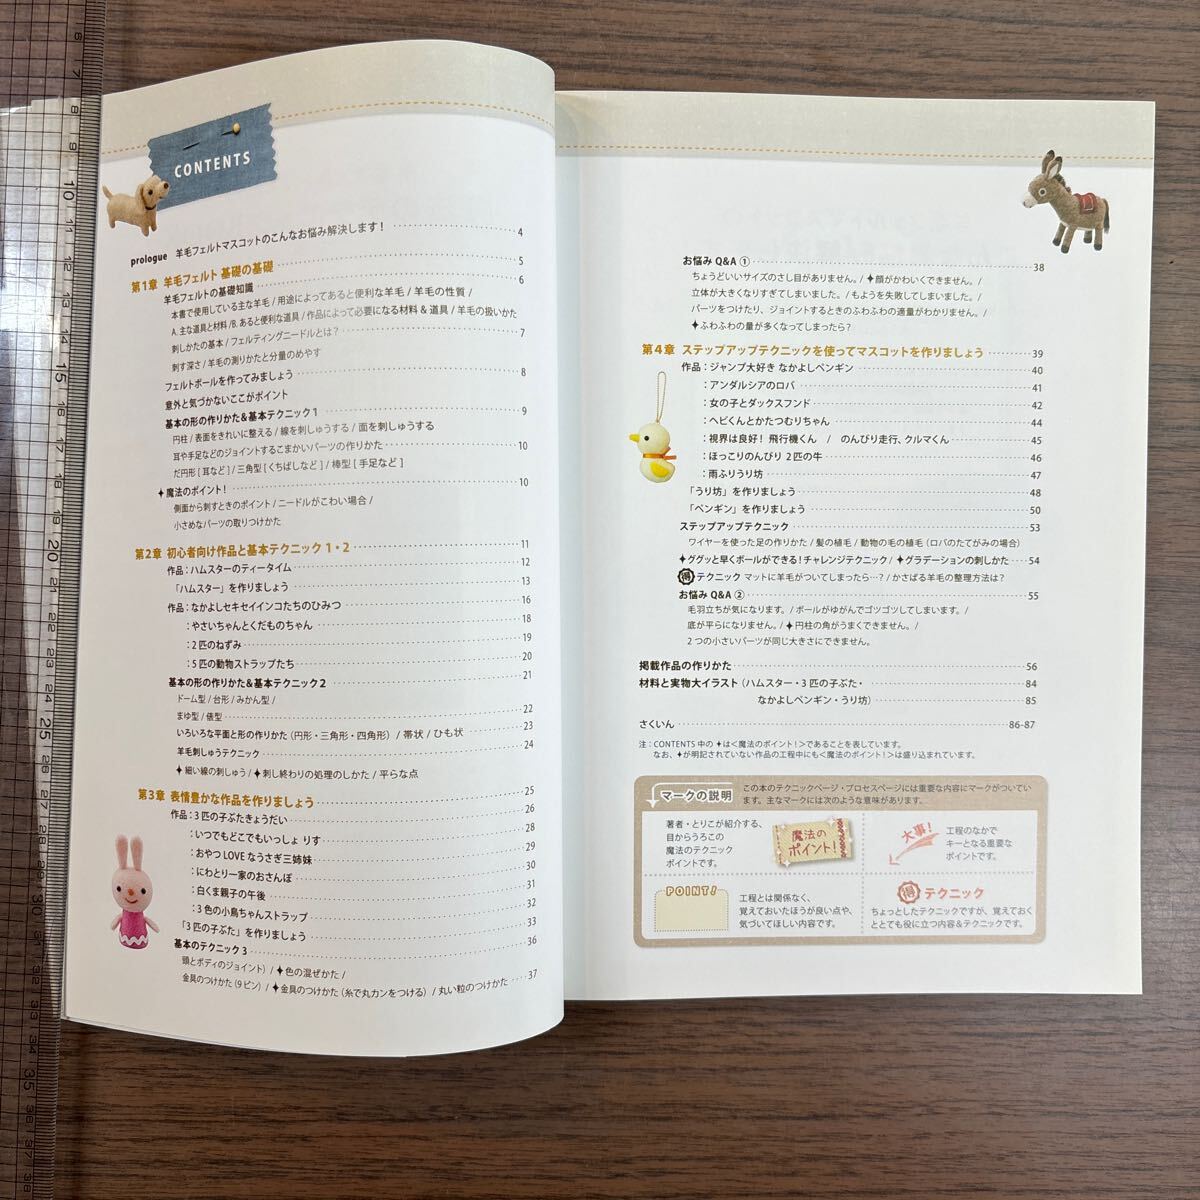 CONTENTS
prologue 羊毛フェルトマスコットのこんなお悩み解決します！ 4
第1章 羊毛フェルト 基礎の基礎 5
羊毛フェルトの基礎知識 6
本書で使用している主な羊毛 / 用途によってあると便利な羊毛 / 羊毛の性質 /
A. 主な道具と材料 / B. あると便利な道具 / 作品によって必要になる材料 & 道具 / 羊毛の扱いかた
刺しかたの基本 / フェルティングニードルとは？ 7
刺す深さ / 羊毛の測りかたと分量のめやす
フェルトボールを作ってみましょう 8
意外と気づかないここがポイント
基本の形の作りかた＆基本テクニック1 9
円柱 / 表面をきれいに整える / 線を刺しゅうする / 面を刺しゅうする
耳や手足などのジョイントするこまかいパーツの作りかた 10
だ円形 [ 耳など ] / 三角型 [ くちばしなど ] / 棒型 [ 手足など ]
✦魔法のポイント！ 10
側面から刺すときのポイント / ニードルがこわい場合 /
小さめなパーツの取りつけかた
第2章 初心者向け作品と基本テクニック 1・2 11
作品：ハムスターのティータイム 12
「ハムスター」を作りましょう 13
作品：なかよしセキセイインコたちのひみつ 16
：やさいちゃんとくだものちゃん 18
：2匹のねずみ 19
：5匹の動物ストラップたち 20
基本の形の作りかた＆基本テクニック2 21
ドーム型 / 台形 / みかん型 /
まゆ型 / 俵型 22
いろいろな平面と形の作りかた（円形・三角形・四角形）/ 帯状 / ひも状 23
羊毛刺しゅうテクニック 24
✦細い線の刺しゅう / ✦刺し終わりの処理のしかた / 平らな点
第3章 表情豊かな作品を作りましょう 25
作品：3匹の子ぶたきょうだい 26
：いつでもどこでもいっしょ りす 28
：おやつ LOVE なうさぎ三姉妹 29
：にわとり一家のおさんぽ 30
：白くま親子の午後 31
：3色の小鳥ちゃんストラップ 32
「3匹の子ぶた」を作りましょう 33
基本のテクニック 3 36
頭とボディのジョイント) / ✦色の混ぜかた /
金具のつけかた (9ピン) / ✦金具のつけかた (糸で丸カンをつける) / 丸い粒のつけかた 37
お悩み Q&A ① 38
ちょうどいいサイズのさし目がありません。/ ✦顔がかわいくできません。/
立体が大きくなりすぎてしまいました。/ もようを失敗してしまいました。/
パーツをつけたり、ジョイントするときのふわふわの適量がわかりません。/
✦ふわふわの量が多くなってしまったら？
第4章 ステップアップテクニックを使ってマスコットを作りましょう 39
作品：ジャンプ大好き なかよしペンギン 40
：アンダルシアのロバ 41
：女の子とダックスフンド 42
：ヘビくんとかたつむりちゃん 44
：視界は良好！ 飛行機くん / のんびり走行、クルマくん 45
：ほっこりのんびり 2匹の牛 46
：雨ふりうり坊 47
「うり坊」を作りましょう 48
「ペンギン」を作りましょう 50
ステップアップテクニック 53
ワイヤーを使った足の作りかた / 髪の植毛 / 動物の毛の植毛（ロバのたてがみの場合）
✦ググッと早くボールができる！チャレンジテクニック / ✦グラデーションの刺しかた 54
得 テクニック マットに羊毛がついてしまったら…？ / かさばる羊毛の整理方法は？
お悩み Q&A ② 55
毛羽立ちが気になります。/ ボールがゆがんでゴツゴツしてしまいます。/
底が平らになりません。/ ✦円柱の角がうまくできません。/
2つの小さいパーツが同じ大きさにできません。
掲載作品の作りかた 56
材料と実物大イラスト（ハムスター・3匹の子ぶた・ 84
なかよしペンギン・うり坊） 85
さくいん 86-87
注：CONTENTS 中の ✦は＜魔法のポイント！＞であることを表しています。
なお、✦が明記されていない作品の工程中にも＜魔法のポイント！＞は盛り込まれています。
マークの説明
この本のテクニックページ・プロセスページには重要な内容にマークがついています。主なマークには次のような意味があります。
著者・とりこが紹介する、
目からうろこの
魔法のテクニック
ポイントです。
魔法の
ポイント！
大事！
工程のなかで
キーとなる重要な
ポイントです。
POINT!
工程とは関係なく、
覚えておいたほうが良い点や、
気づいてほしい内容です。
得 テクニック
ちょっとしたテクニックですが、覚えておく
ととても役に立つ内容&テクニックです。